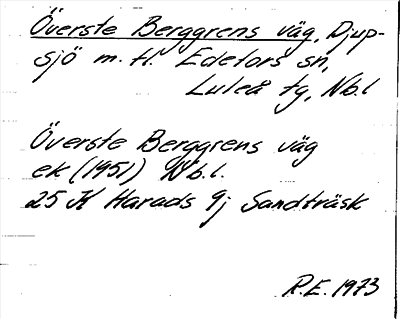 Överste Berggrens väg, Djup-
sjö m. fl. Edefors sn,
Luleå tg, Nb.l
Överste Berggrens väg
ek (1951) Nb.l.
25 K Harads 9j Sandträsk
R.E. 1973